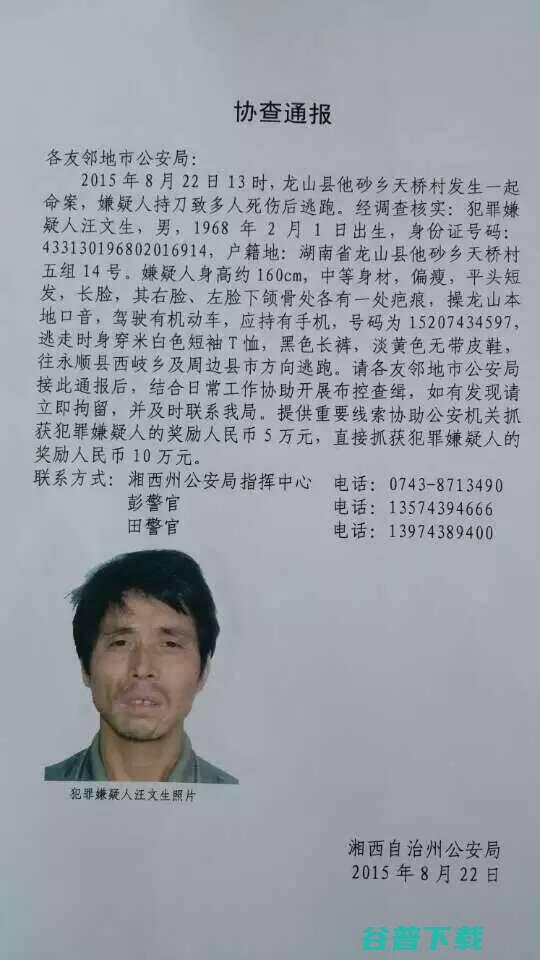 协查通报
各友邻地市公安局：
2015年8月22日13时，龙山县他砂乡天桥村发生一起
命案，嫌疑人持刀致多人死伤后逃跑。经调查核实：犯罪嫌
疑人汪文生，男，1968 年 2 月 1 日出生，身份证号码：
433130196802016914，户籍地：湖南省龙山县他砂乡天桥村
五组 14 号。嫌疑人身高约 160cm，中等身材，偏瘦，平头短
发，长脸，其右脸、左脸下颌骨处各有一处疤痕，操龙山本
地口音，驾驶有机动车，应持有手机，号码为 15207434597，
逃走时身穿米白色短袖T恤，黑色长裤，淡黄色无带皮鞋，
往永顺县西岐乡及周边县市方向逃跑。请各友邻地市公安局
接此通报后，结合日常工作协助开展布控查缉，如有发现请
立即拘留，并及时联系我局。提供重要线索协助公安机关抓
获犯罪嫌疑人的奖励人民币 5 万元，直接抓获犯罪嫌疑人的
奖励人民币 10 万元。
联系方式：湘西州公安局指挥中心 电话：0743-8713490
彭警官 电话：13574394666
田警官 电话：13974389400
犯罪嫌疑人汪文生照片
湘西自治州公安局
2015 年 8 月 22 日
谷普下载